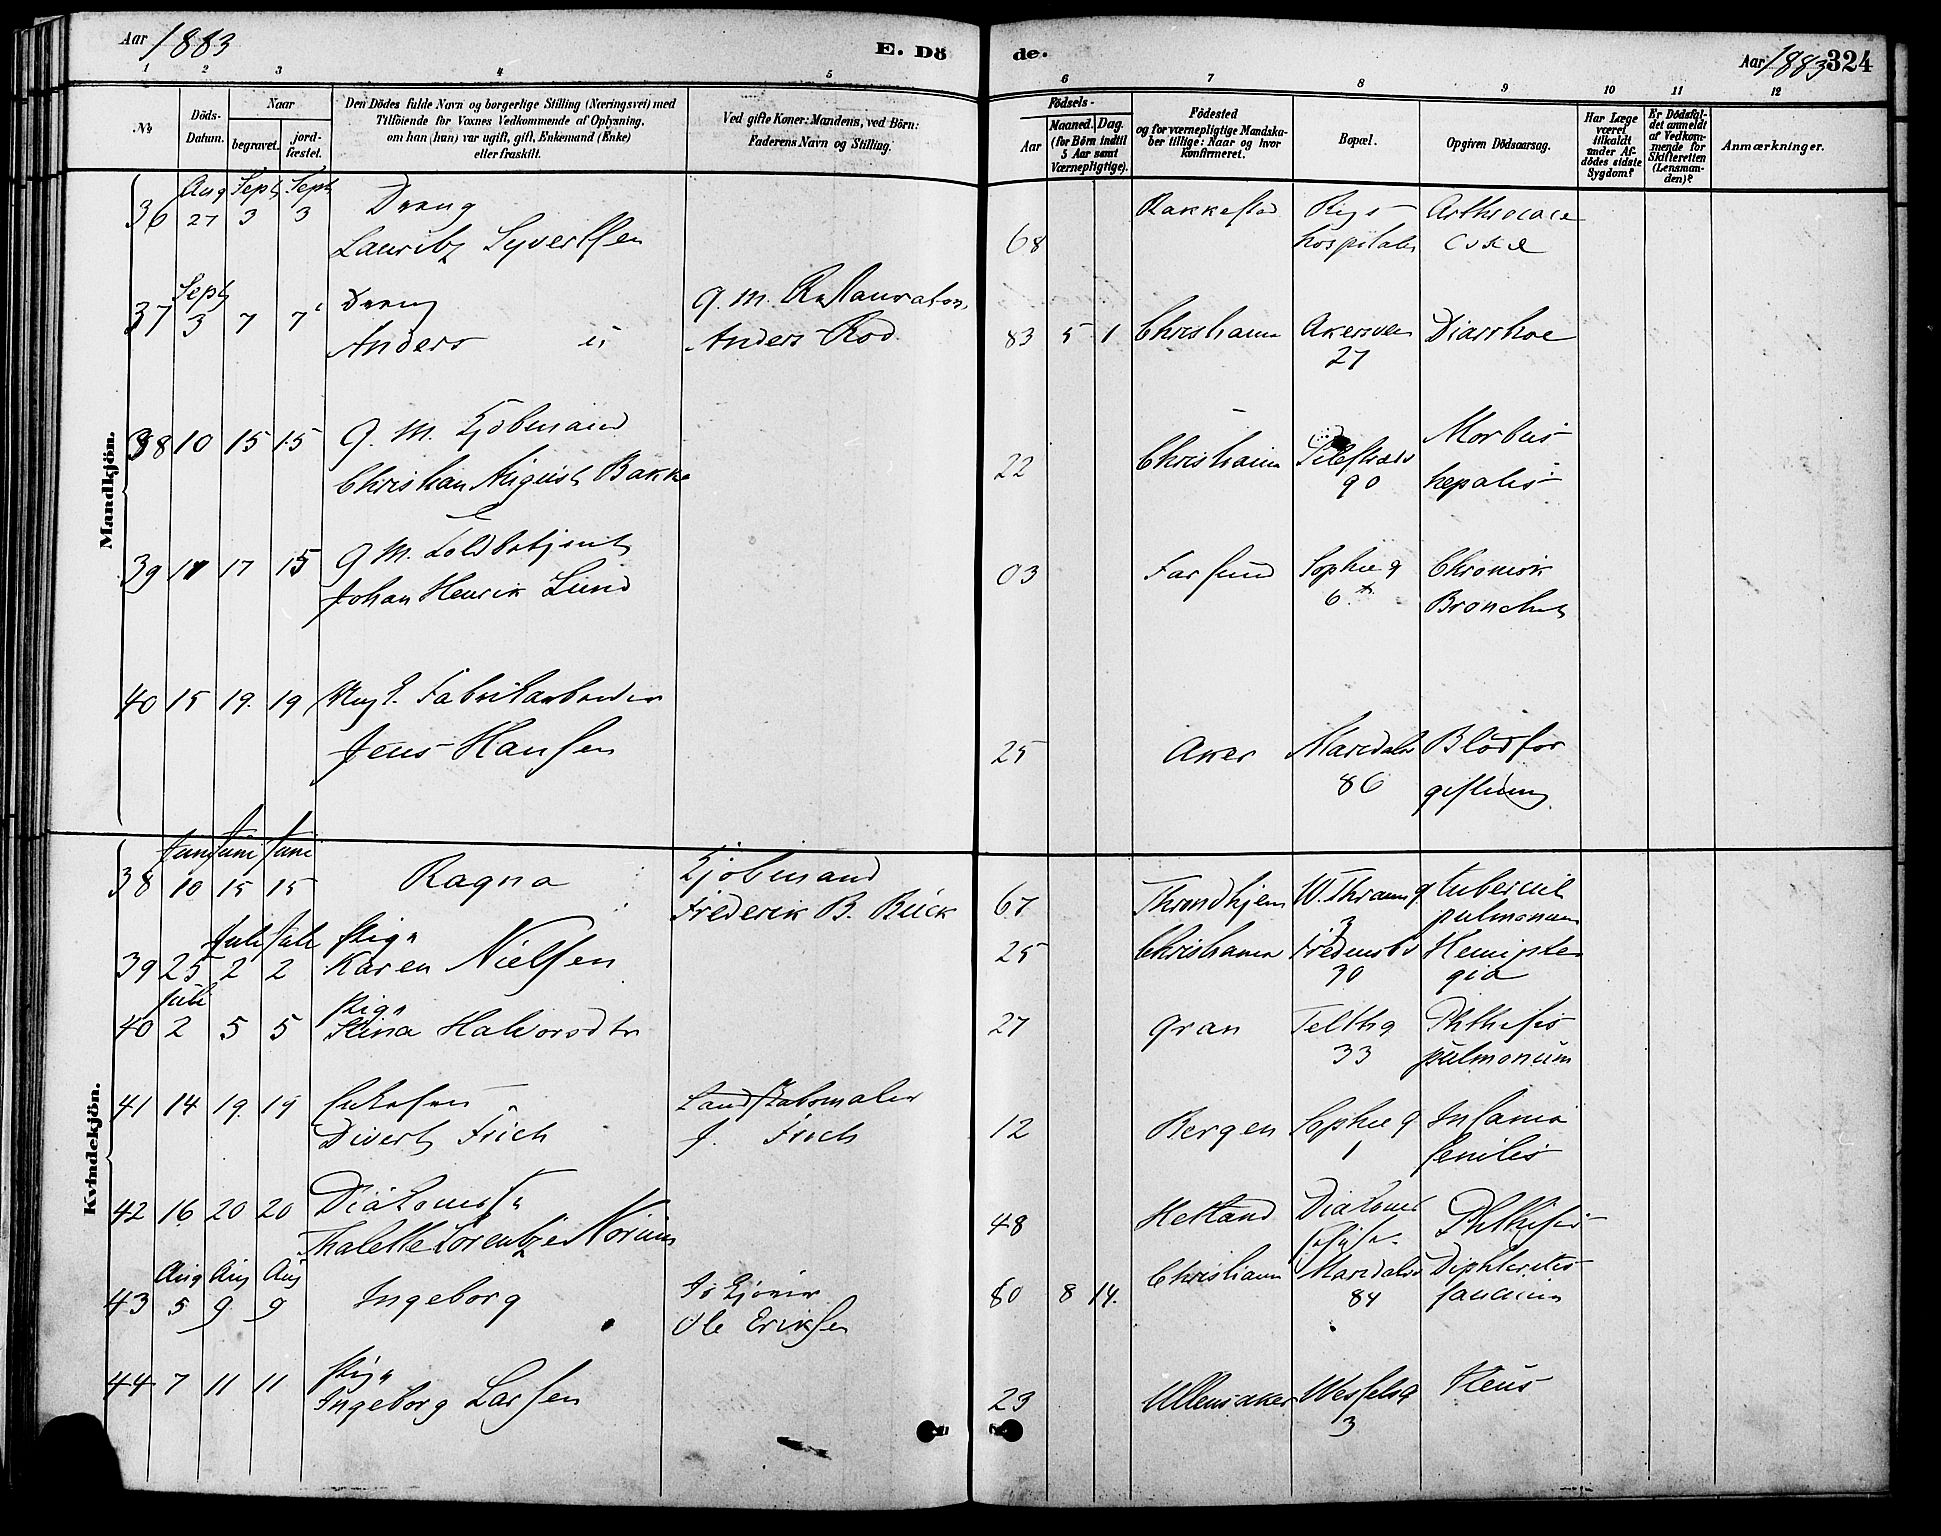 Aar 1883
E. Dö
de.
Aar 1883 324
1 2 3 4 5 6 7 8 9 10 11 12
No
Döds-
Datum.
Naar
begravet. jord-
fæstet.
Den Dödes fulde Navn og borgerlige Stilling (Næringsvei) med
Tilföiende for Voxnes Vedkommende af Oplysning,
om han (hun) var ugift, gift, Enkemand (Enke)
eller fraskilt.
Ved gifte Koner: Mandens, ved Börn:
Faderens Navn og Stilling.
Födsels-
Aar Maaned. Dag.
(for Börn indtil
5 Aar samt
Værnepligtige).
Födested
og for værnepligtige Mandska-
ber tillige: Naar og hvor
konfirmeret.
Bopæl.
Opgiven Dödsaarsag.
Har Læge
været
tilkaldt
under Af-
dödes sidste
Sygdom?
Er Dödsfal-
det anmeldt
af Vedkom-
mende for
Skifteretten
(Lensman-
den)?
Anmærkninger.
Mandkjön.
Aug Sept Sept
36 27 3 3 Dreng
Lauritz Syvertsen
68 Rakkestad Rigs-
hospitalet
Arthrocace
coxae
Sept
37 3 7 7 Dreng
Anders
g. M. Restauratør
Anders Rod
83 5 1 Christiania Akersveien
27
Diarrhoe
38 10 15 15 g. M. Kjöbmand
Christian August Bakke
22 Christiania Pilestræde
90
Morbus
hepatis
39 11 17 15 g M. Toldbetjent
Johan Henrik Lund
03 Farsund Sophieg
6
Chronisk
Bronchit
40 15 19 19 Ung. Fabrikarbeider
Jens Hansen
25 Aker Maridalsv
86
Blodfor
giftning
Kvindekjön.
Juni Juni Juni
38 10 15 15 Ragna
Kjöbmand
Frederik B. Bück
67 Throndhjem W. Thranesg
3
tubercul
pulmonum
Juli Juli
39 25 2 2 Pige
Karen Nielsen
25 Christiania Fredensb
30
Hemiple
gia
Juli
40 2 5 5 Pige
Stina Halvorsdtr
27 Gran Telthg
33
Phthisis
pulmonum
41 14 19 19 Enkefru
Divert Frich
Landskabsmaler
J. Frich
12 Bergen Sophieg
1
Insania
senilis
42 16 20 20
Thalette Lorentze Norum
48 Hetland Diakonis
Phthisis
Aug Aug Aug
43 5 9 9 Ingeborg
Ole Eriksen
80 8 14. Christiania Maridalsv
84
Diphteritis
faucium
44 7 11 11 Pige
Ingeborg Larsen
23 Ullensaker Wesselsg
3
Ileus